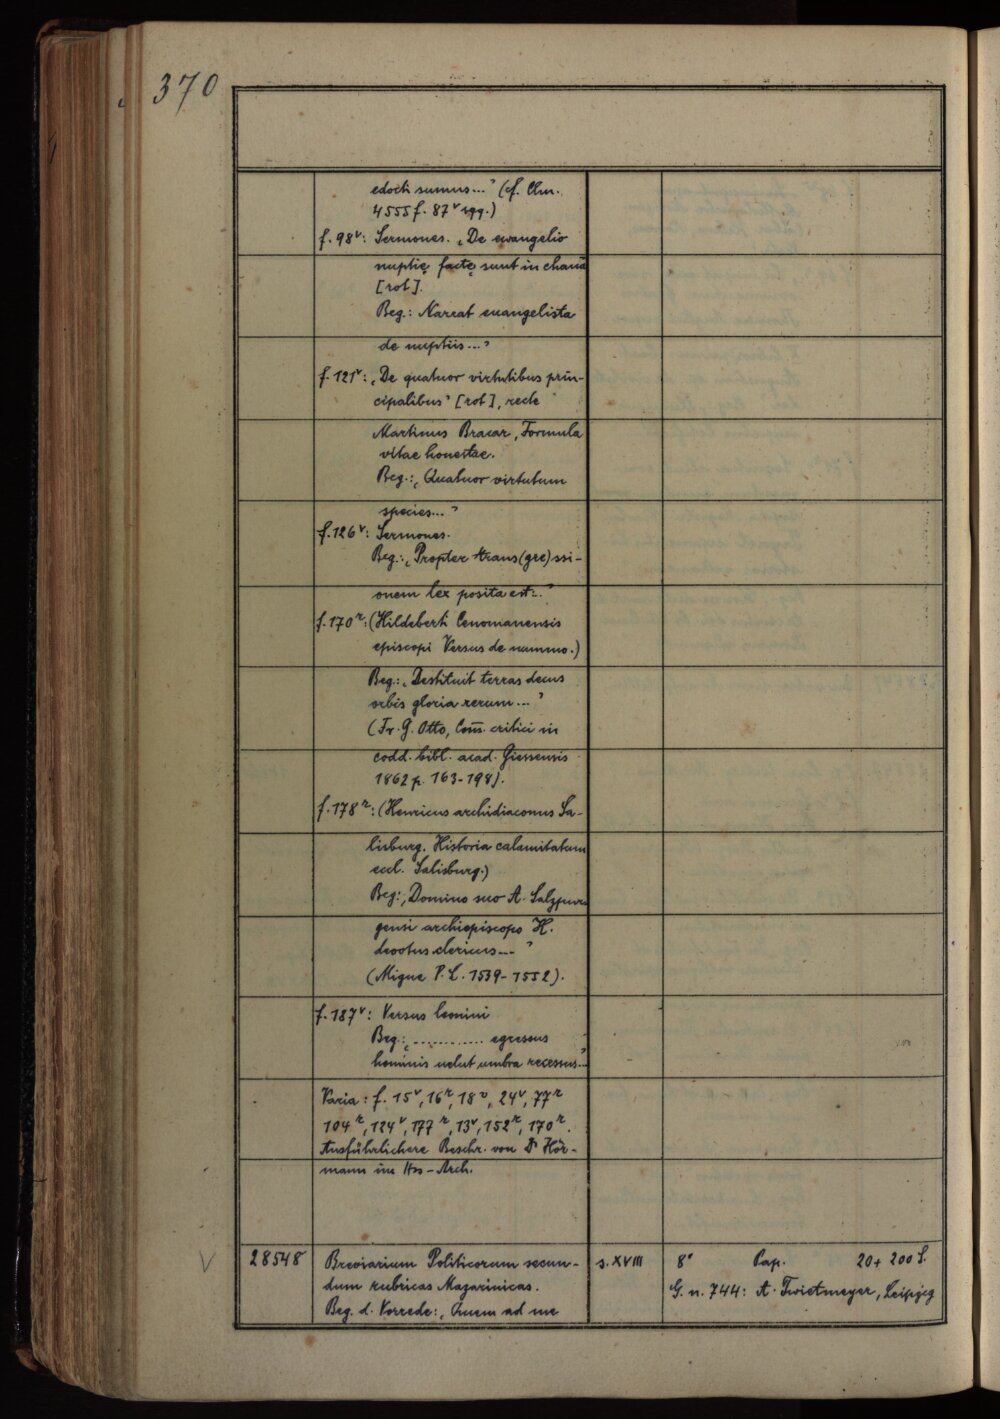 370
edocti sumus..." (cf. Clm.
4555 f. 87v sqq.)
f. 98v: Sermones. „De ewangelio
nuptię factę sunt in chana
[rot].
Beg.: Narrat euangelista
de nuptiis..."
f. 121v: „De quatuor virtutibus prin-
cipalibus" [rot], recte
Martinus Bracar, Formula
vitae honestae.
Beg.: „Quatuor virtutum
species..."
f. 126v: Sermones.
Beg.: „Propter trans(gre)ssi-
onem lex posita est..."
f. 170r: (Hildeberti Cenomanensis
episcopi Versus de nummo.)
Beg.: „Destituit terras decus
orbis gloria rerum..."
(Fr. G. Otto, Com̄. critici in
codd. bibl. acad. Giessensis
1862 p. 163-198).
f. 178r: (Henricus archidiaconus Sa-
lisburg. Historia calamitatum
eccl. Salisburg.)
Beg.: „Domino suo A. Salzpurc
gensi archiepiscopo H.
devotus clericus..."
(Migne P. L. 1539-1552).
f. 187v: Versus leonini
Beg.: „............ egressus
hominis uelut umbra recessus..."
Varia: f. 15v, 16r, 18v, 24v, 77r
104r, 124v, 177r, 13v, 152r, 170r.
Ausführlichere Beschr. von Dr Hör-
mann im Hss-Arch.
28548 Breviarium Politicorum secun- s. XVIII 8° Pap. 20 + 200 S.
dum rubricas Mazarinicas. G. n. 744: A. Twietmeyer, Leipzig
Beg. d. Vorrede: „Quem ad me